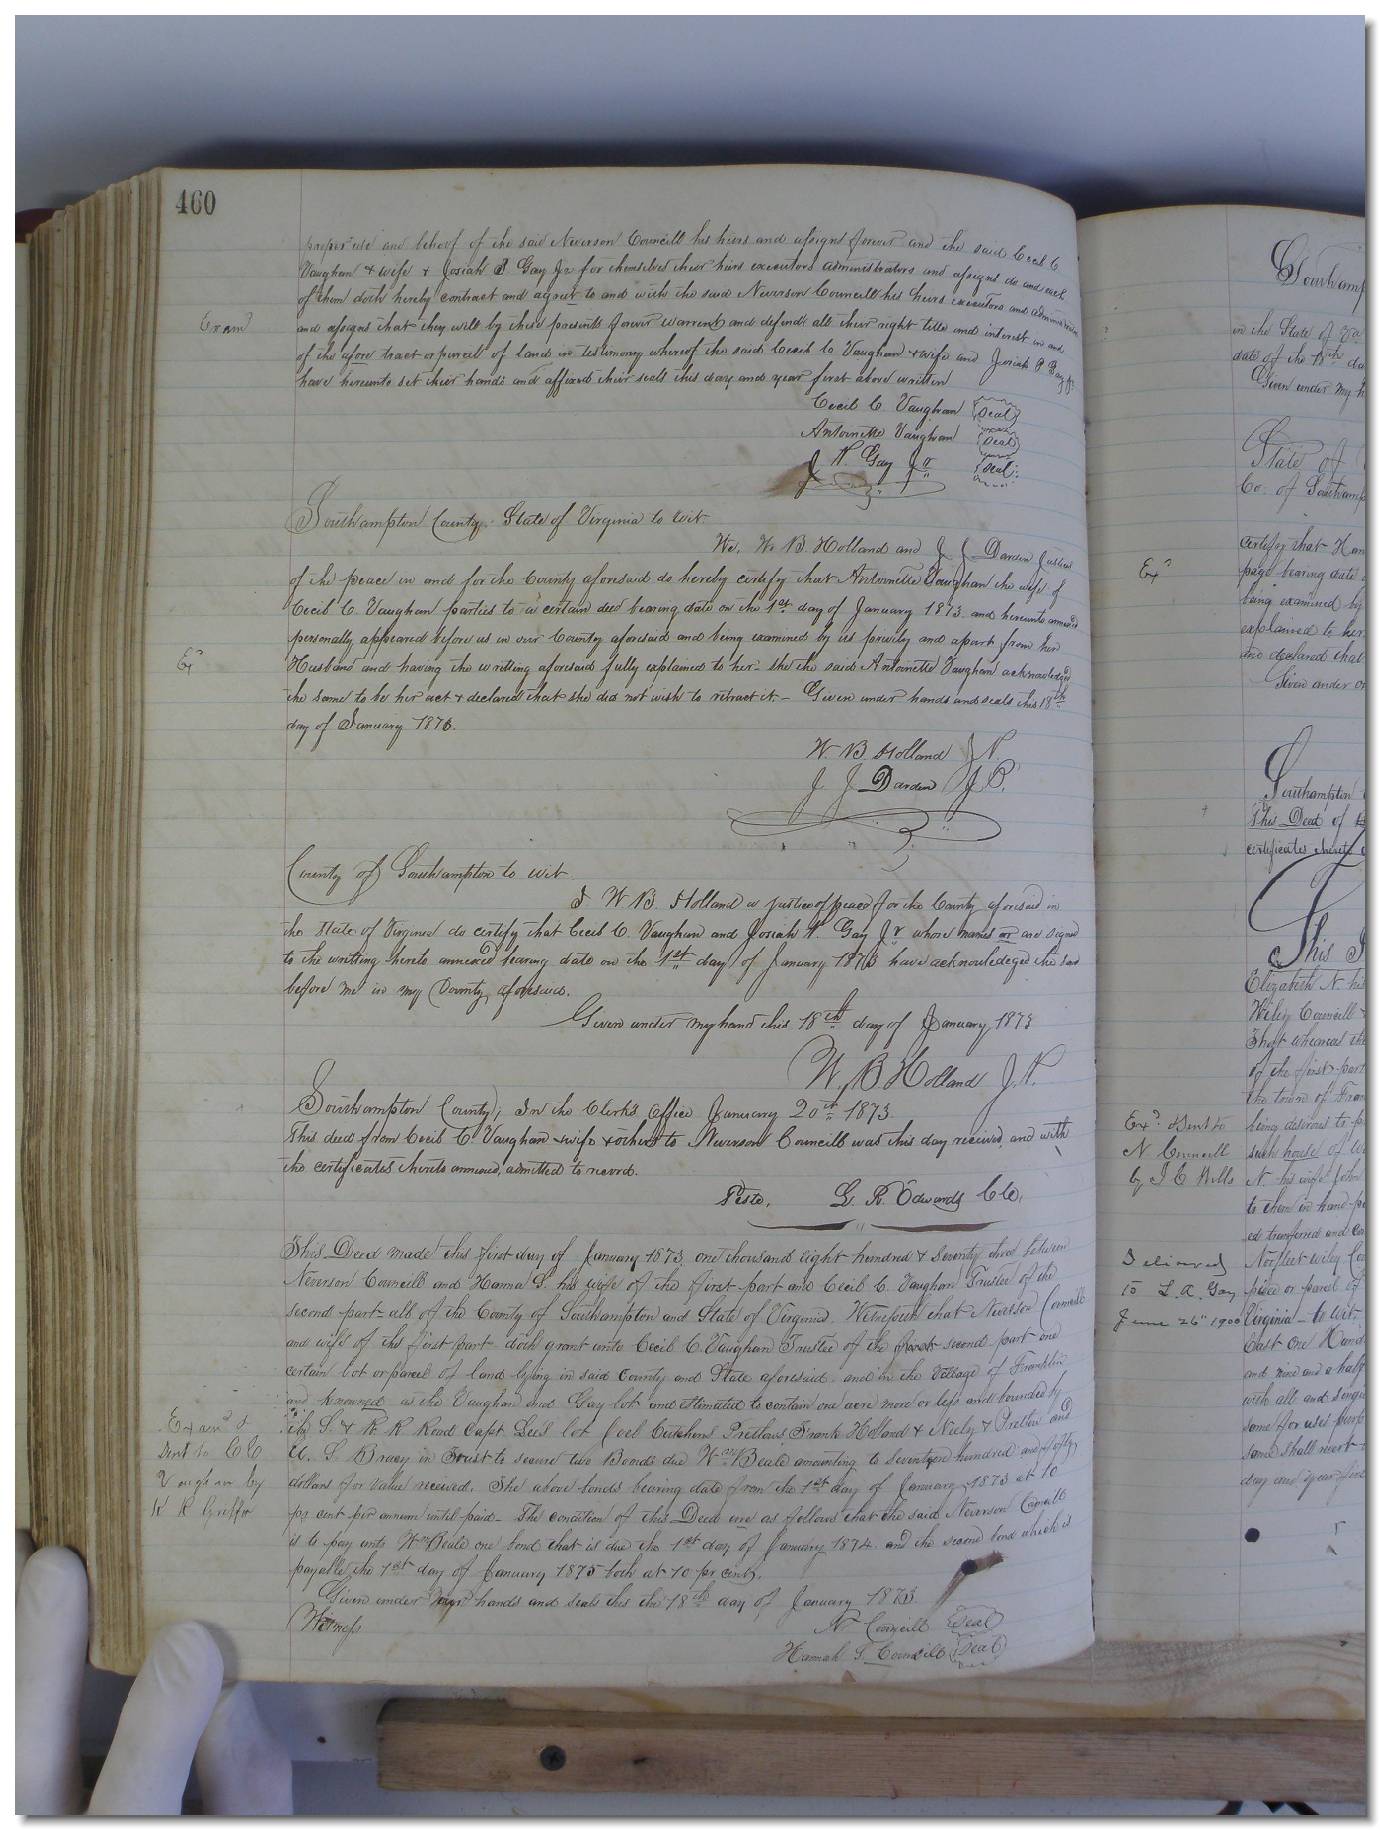 460
proper use and behoof of the said Neverson Councill his heirs and assigns forever and the said Cecil C
Vaughan & wife & Josiah P Gay Jr for themselves their heirs executors administrators and assigns do and each
of them doth hereby contract and agree to and with the said Neverson Councill his heirs executors and administrators
Exam
and assigns that they will by these presents forever warrent and defend all their right title and interest in and
of the afore tract or parcell of land in testimony whereof the said Cecil C Vaughan & wife and Josiah P Gay Jr
have hereunto set their hands and affixed their seals this day and year first above written
Cecil C. Vaughan Seal
Antoinette Vaughan Seal
J P. Gay Jr Seal
Southampton County. State of Virginia to wit.
We, W. B. Holland and J J Darden Justices
of the peace in and for the County aforesaid do hereby certify that Antoinette Vaughan the wife of
Cecil C. Vaughan parties to a certain deed bearing date on the 1st day of January 1873 and hereunto annexed
personally appeared before us in our County aforesaid and being examined by us privily and apart from her
Exd
Husband and having the writting aforesaid fully explained to her - she the said Antoinette Vaughan acknowledged
the same to be her act & declared that she did not wish to retract it - Given under hands and seals this 18th
day of January 1873.
W. B. Holland J P.
J J Darden J P.
County of Southampton to wit
I W B. Holland a Justice of peace for the County aforesaid in
the State of Virginia do certify that Cecil C. Vaughan and Josiah P. Gay Jr whose names are signed
to the writting hereto annexed bearing date on the 1st day of January 1873 have acknowledeged the same
before me in my County aforesaid.
Given under my hand this 18th day of January 1873
W. B. Holland J. P.
Southampton County; In the Clerks Office January 20th 1873.
This deed from Cecil C. Vaughan & wife & others to Neverson Councill was this day received, and with
the certificates thereto annexed, admitted to record.
Teste, L. R. Edwards Clk.
This Deed made this first day of January 1873 one thousand eight hundred & seventy three between
Neverson Councill and Hanna S. his wife of the first part and Cecil C. Vaughan Trustee of the
second part - all of the County of Southampton and State of Virginia. Witnesseth that Neverson Councill
and wife of the first part doth grant unto Cecil C. Vaughan Trustee of the second part one
certain lot or parcel of land lying in said County and State aforesaid and in the Village of Franklin
and knowned as the Vaughan and Gay lot and estimated to contain one acre more or less and bounded by
Examd &
sent to C C
Vaughan by
the S. & R. R Road Capt Lee's lot Joel Cutchens Pretlows, Frank Holland & Neely & Pretlow and
in Trust to secure two Bonds due Wm Beale amounting to seventeen hundred and fifty
dollars for value received. The above bonds bearing date from the 1st day of January 1873 at 10
pr cent per annum until paid - The condition of this Deed are as follows that the said Neverson Councill
is to pay unto Wm Beale one bond that is due the 1st day of January 1874. and the second bond which is
payable the 1st day of January 1875 both at 10 pr cent.
Given under hands and seals this the 18th day of January 1873
Witness
N Councill Seal
Hannah S. Councill Seal
Southamp
in the State of Va
date of the 18th da
Given under my h
State of
Co. of Southamp
Exd
certify that Han
page bearing date
being examined by
explained to her
and declared that
Given under o
Southampton
This Deed of
certificates thereto
This
Elizabeth N his
Wiley Councill
That whereas the
of the first part
the town of Fran
Exd & sent to
N Councill
by J E Bills
being desirous to p
such house of w
N. his wife
to them in hand p
ed transferred and con
Delivered
to L. A. Gay
June 26" 1900
Norfleet Wiley Co
piece or parcel of
Virginia - to wit.
East One Hund
and nine and a half
with all and singu
same for uses purp
same shall revert
day and year first